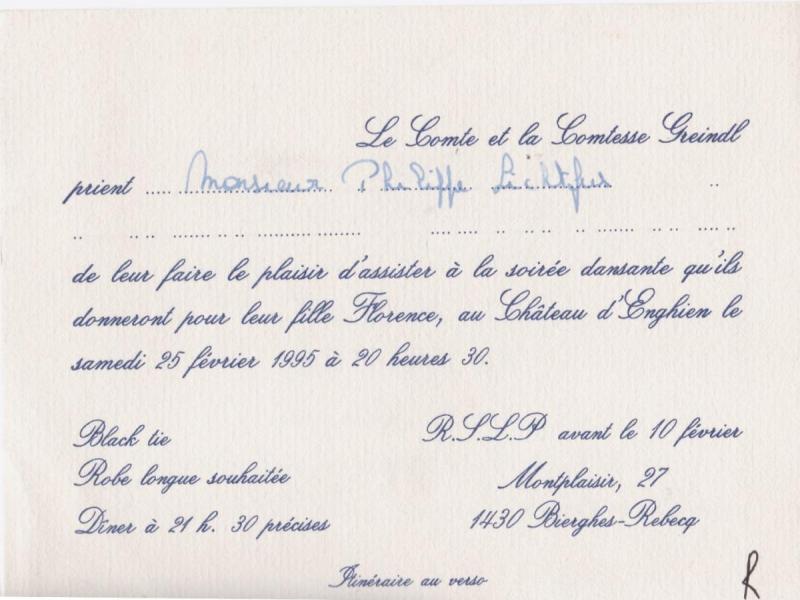 Le Comte et la Comtesse Greindl
prient ..... Monsieur Philippe
de leur faire le plaisir d'assister à la soirée dansante qu'ils
donneront pour leur fille Florence, au Château d'Enghien le
samedi 25 février 1995 à 20 heures 30.
Black tie
Robe longue souhaitée
Dîner à 21 h. 30 précises
R.S.L.P avant le 10 février
Montplaisir, 27
1430 Bierghes-Rebecq
Itinéraire au verso
R